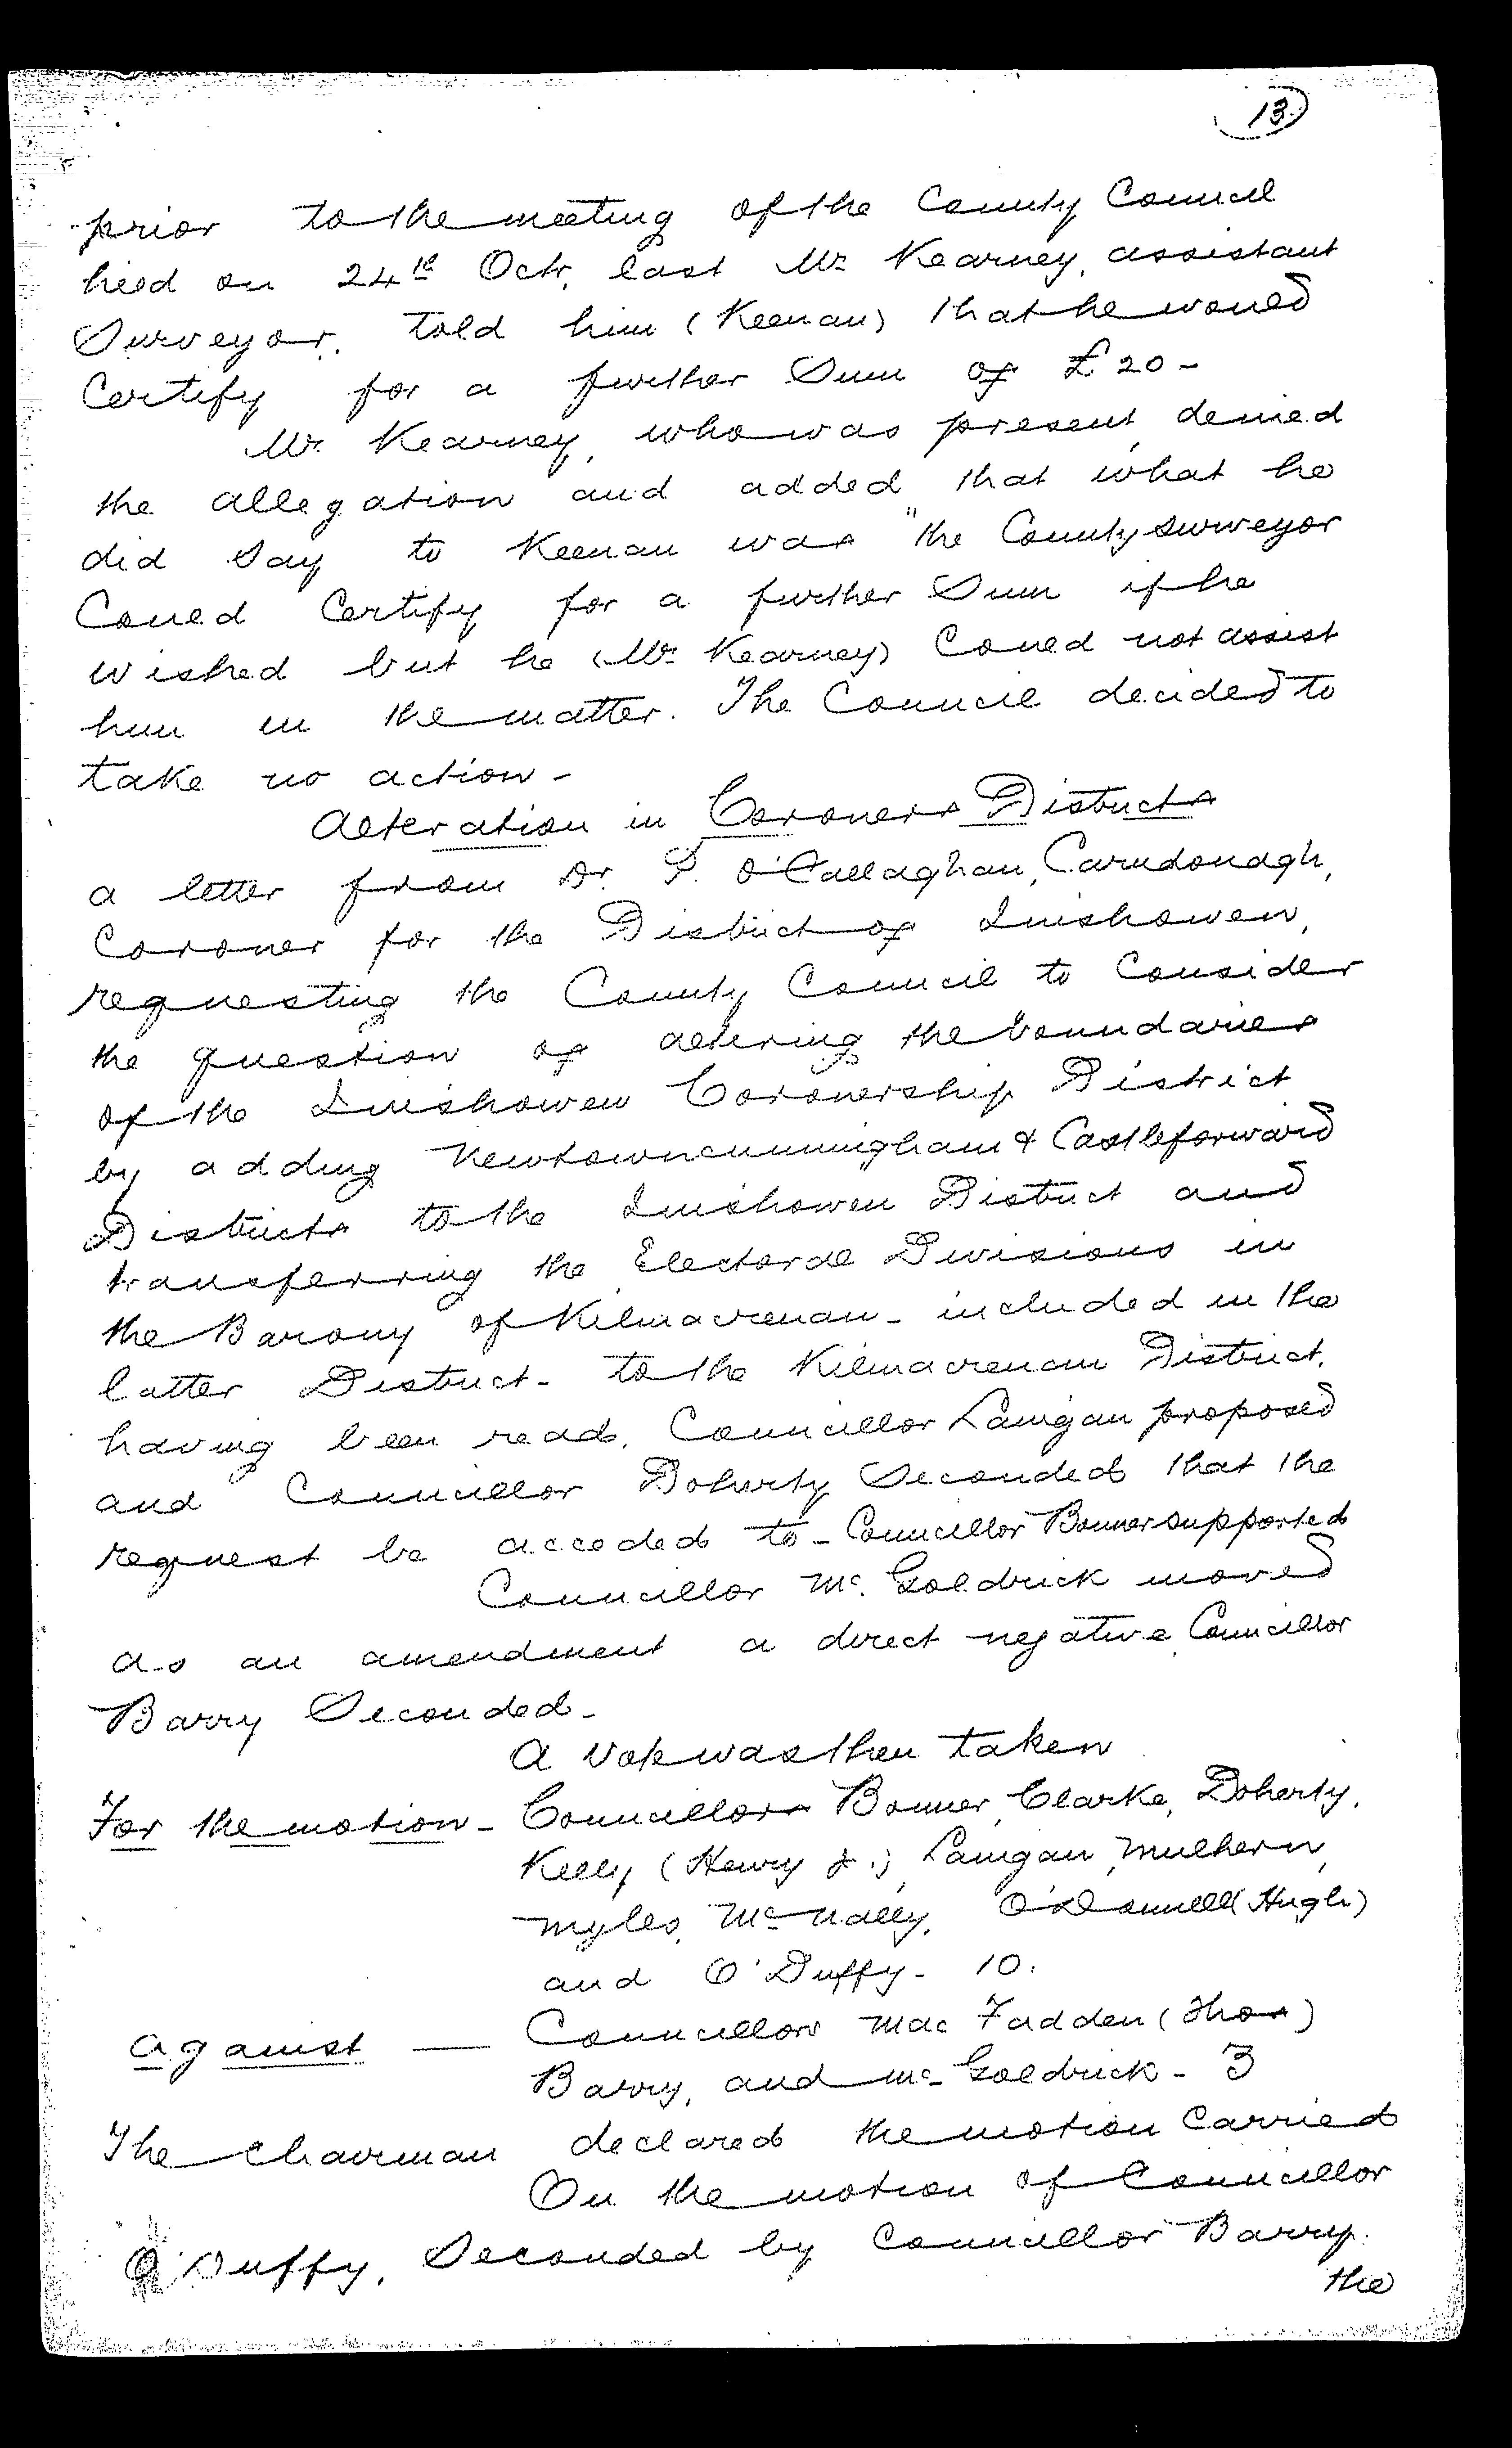 13
prior to the meeting of the County Council
held on 24th Octr, last Mr Kearney, assistant
Surveyor, told him (Keenan) that he would
Certify for a further Sum of £20-
Mr. Kearney, who was present, denied
the allegation and added that what he
did say to Keenan was "the County surveyor
Could Certify for a further Sum if he
wished but he (Mr Kearney) Could not assist
him in the matter. The Council decided to
take no action -
Alteration in Coroners Districts
a letter from Dr. P. O'Callaghan, Carndonagh,
Coroner for the District of Inishowen,
requesting the County Council to Consider
the question of altering the boundaries
of the Inishowen Coronership District
by adding Newtowncunningham & Castleforward
Districts to the Inishowen District and
transferring the Electoral Divisions in
the Barony of Kilmacrenan - included in the
latter District - to the Kilmacrenan District,
having been read, Councillor Lanigan proposed
and Councillor Doherty Seconded that the
request be acceded to - Councillor Bonner supported
Councillor Mc Goldrick moved
as an amendment a direct negative Councillor
Barry Seconded -
A vote was then taken
For the motion - Councillors Bonner, Clarke, Doherty,
Kelly (Henry J.), Lanigan, Mulhern,
Myles, McNally, O'Donnell (Hugh)
and O'Duffy - 10.
Against — Councillors Mac Fadden (Thos)
Barry, and Mc Goldrick - 3
The Chairman declared the motion Carried
On the motion of Councillor
O'Duffy, Seconded by Councillor Barry
the